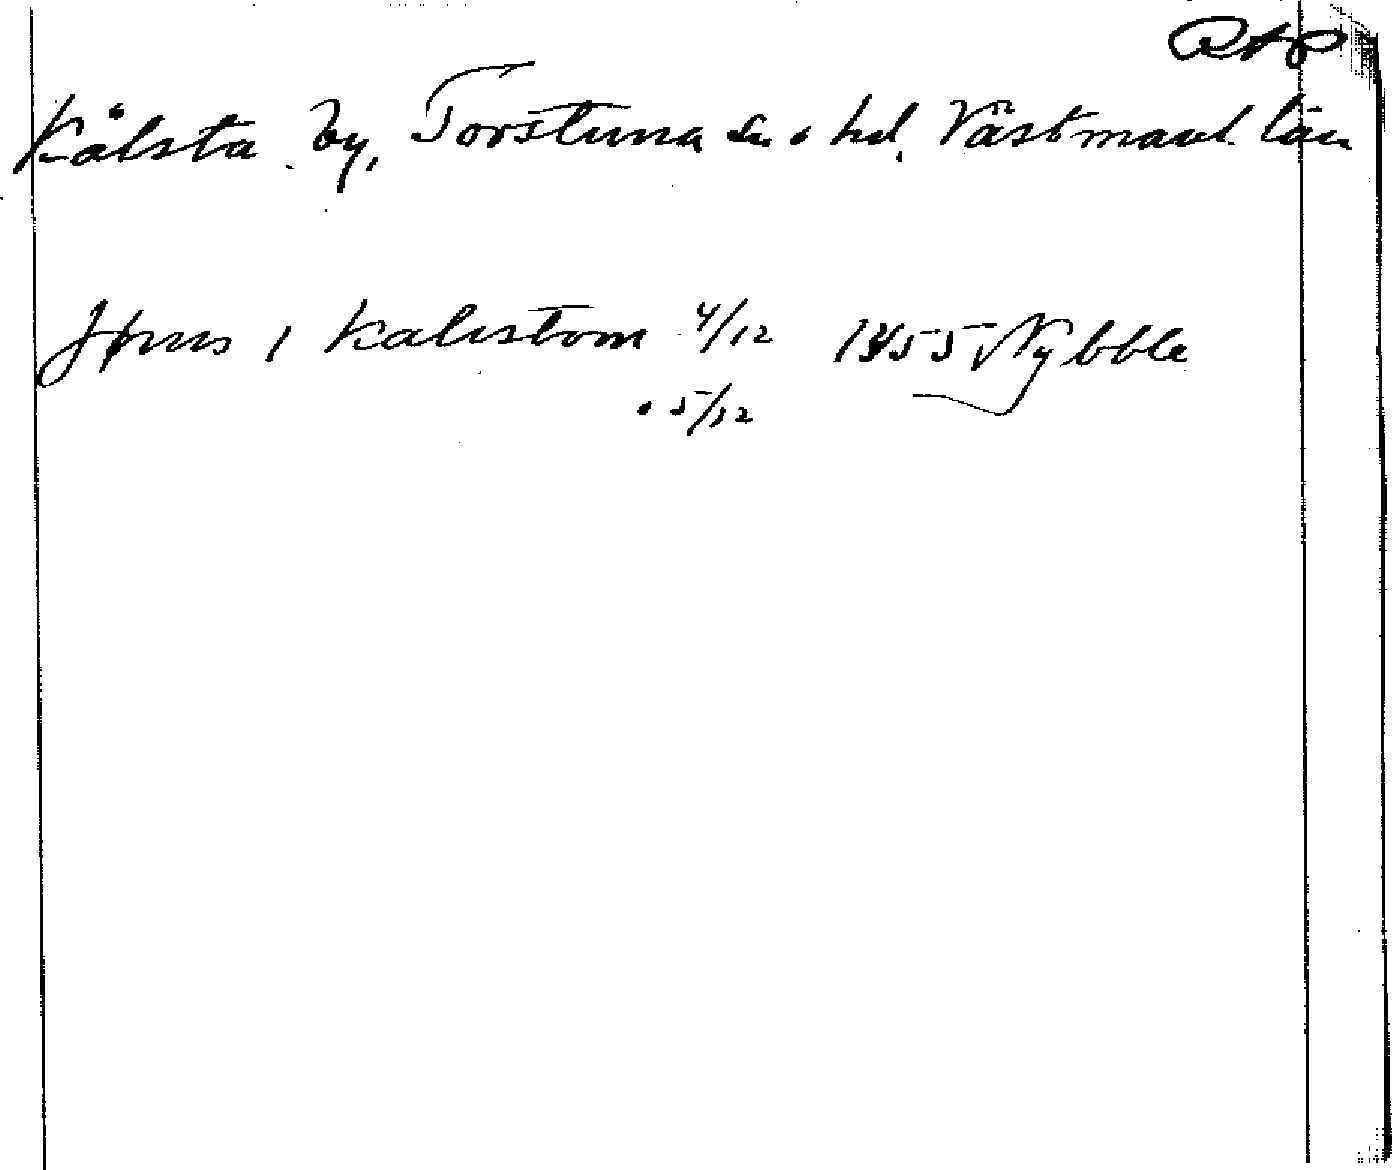 RAP
Kålsta by, Torstuna sn o hd. Västmanl. län
Jönus i Kalistom 4/12 1455 Nybble
. 5/12